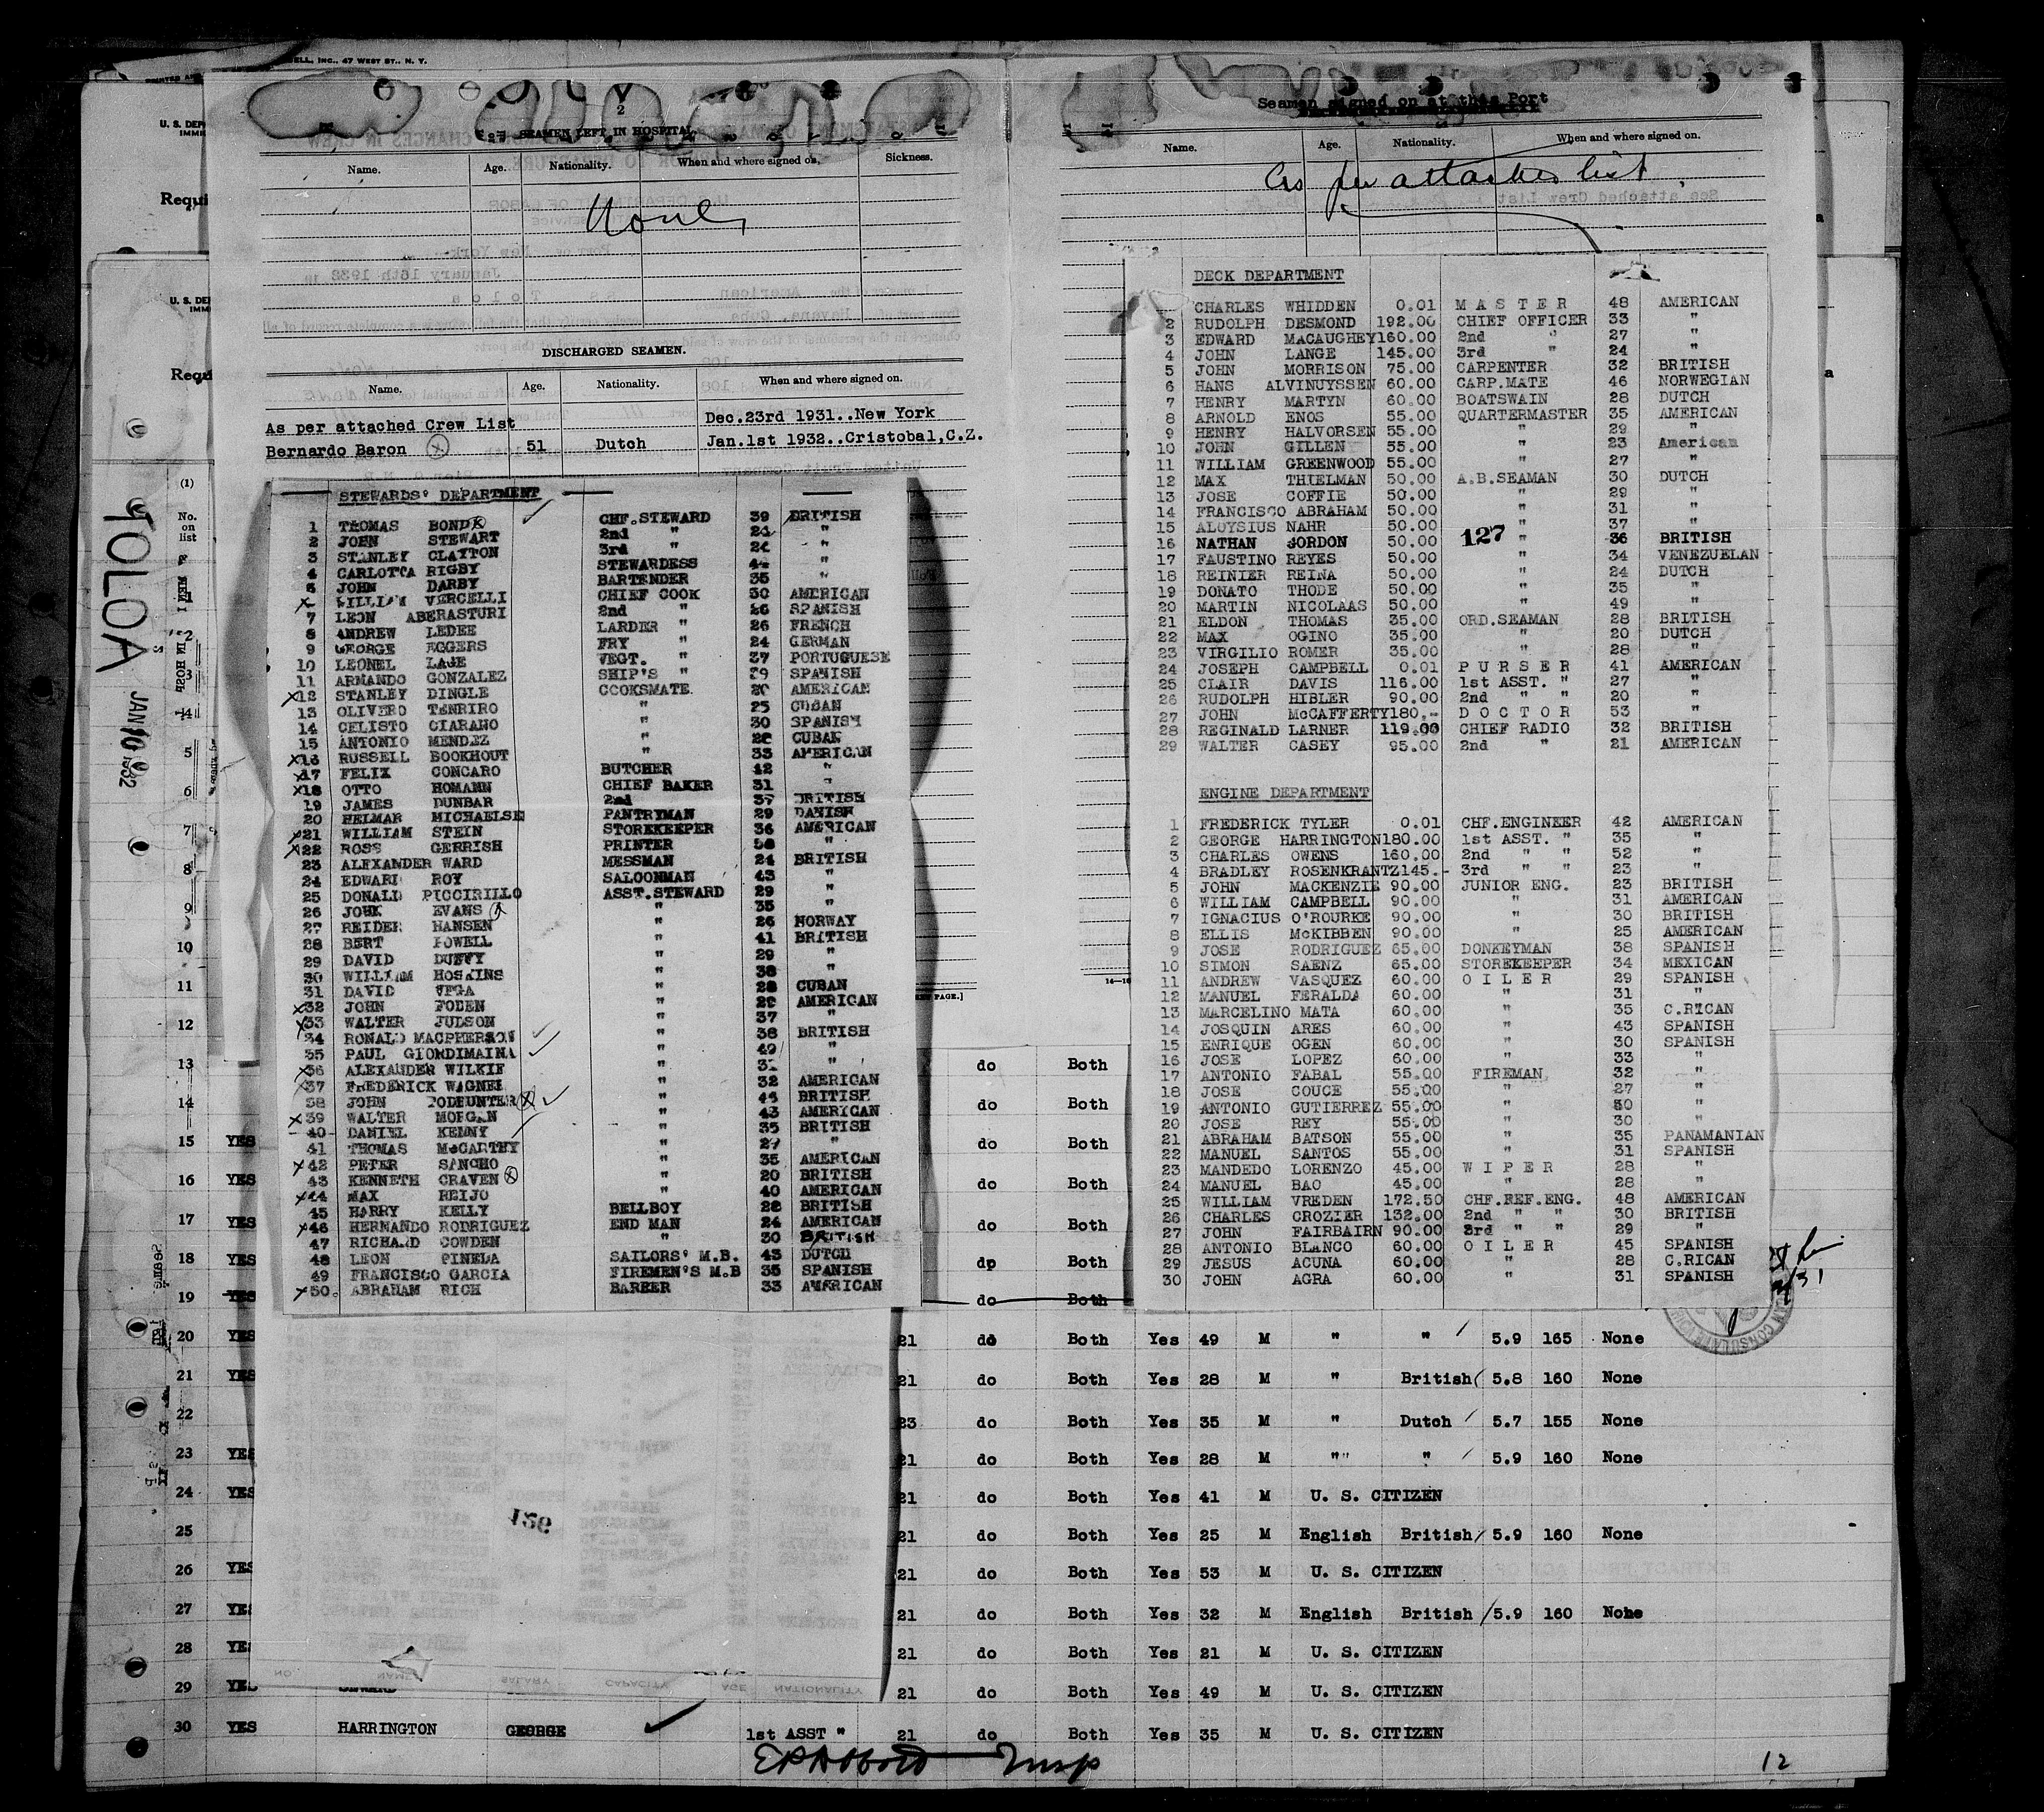 ELL, INC., 47 WEST ST., N. Y.
U. S. DEP
IMMI
Requi
U. S. DE
IMM
Requ
TOLOA JAN 10 1932
2
SEAMEN LEFT IN HOSPITAL
Name. Age. Nationality. When and where signed on, Sickness.
None
DISCHARGED SEAMEN.
Name. Age. Nationality. When and where signed on.
As per attached Crew List Dec.23rd 1931..New York
Bernardo Baron 51 Dutch Jan.1st 1932..Cristobal,C.Z.
STEWARDS' DEPARTMENT
1 THOMAS BOND CHF.STEWARD 39 BRITISH
2 JOHN STEWART 2nd " 24 "
3 STANLEY CLAYTON 3rd " 24 "
4 CARLOTTA RIGBY STEWARDESS 44 "
5 JOHN DARBY BARTENDER 35 "
WILLIAM VERCELLI CHIEF COOK 30 AMERICAN
7 LEON ABERASTURI 2nd " 26 SPANISH
8 ANDREW LEDEE LARDER " 26 FRENCH
9 GEORGE EGGERS FRY " 24 GERMAN
10 LEONEL LAGE VEGT. " 37 PORTUGUESE
11 ARMANDO GONZALEZ SHIP'S " 39 SPANISH
x12 STANLEY DINGLE COOKSMATE 20 AMERICAN
13 OLIVERO TENRIRO " 25 CUBAN
14 CELISTO CIARANO " 30 SPANISH
15 ANTONIO MENDEZ " 28 CUBAN
x16 RUSSELL BOOKHOUT " 33 AMERICAN
x17 FELIX CONCARO BUTCHER 42 "
x18 OTTO HOMANN CHIEF BAKER 31 "
19 JAMES DUNBAR 2nd 37 BRITISH
20 HELMAR MICHAELSE PANTRYMAN 29 DANISH
x21 WILLIAM STEIN STOREKEEPER 36 AMERICAN
x22 ROSS GERRISH PRINTER 58 "
23 ALEXANDER WARD MESSMAN 24 BRITISH
24 EDWARD ROY SALOONMAN 43 "
25 DONALD PICCIRILLO ASST.STEWARD 29 "
26 JOHN EVANS " 35 "
27 REIDER HANSEN " 26 NORWAY
28 BERT POWELL " 41 BRITISH
29 DAVID DUFFY " 29 "
30 WILLIAM HOSKINS " 38 "
31 DAVID VEGA " 28 CUBAN
x32 JOHN FODEN " 29 AMERICAN
x33 WALTER JUDSON " 37 "
34 RONALD MACPHERSON " 38 BRITISH
35 PAUL GIORDIMAINA " 49 "
x36 ALEXANDER WILKIE " "
37 FREDERICK WAGNER " 32 AMERICAN
38 JOHN TODHUNTER " 44 BRITISH
x39 WALTER MORGAN " 43 AMERICAN
40 DANIEL KENNY " 35 BRITISH
41 THOMAS McCARTHY " 27 "
x42 PETER SANCHO " 35 AMERICAN
43 KENNETH CRAVEN " 20 BRITISH
x44 MAX REIJO " 40 AMERICAN
45 HARRY KELLY BELLBOY 22 BRITISH
x46 HERNANDO RODRIGUEZ END MAN 24 AMERICAN
47 RICHARD COWDEN " 30 BRITISH
48 LEON PINEDA SAILORS' M.B. 43 DUTCH
49 FRANCISCO GARCIA FIREMEN'S M.B 35 SPANISH
x50. ABRAHAM RICH BARBER 33 AMERICAN
Seamen signed on at this Port
Name. Age. Nationality. When and where signed on.
As per attached list.
DECK DEPARTMENT
CHARLES WHIDDEN 0.01 M A S T E R 48 AMERICAN
2 RUDOLPH DESMOND 192.00 CHIEF OFFICER 33 "
3 EDWARD MACAUGHEY 160.00 2nd " 27 "
4 JOHN LANGE 145.00 3rd " 24 "
5 JOHN MORRISON 75.00 CARPENTER 32 BRITISH
6 HANS ALVINUYSSEN 60.00 CARP.MATE 46 NORWEGIAN
7 HENRY MARTYN 60.00 BOATSWAIN 28 DUTCH
8 ARNOLD ENOS 55.00 QUARTERMASTER 35 AMERICAN
9 HENRY HALVORSEN 55.00 " 29 "
10 JOHN GILLEN 55.00 " 23 American
11 WILLIAM GREENWOOD 55.00 " 27 "
12 MAX THIELMAN 50.00 A.B.SEAMAN 30 DUTCH
13 JOSE COFFIE 50.00 " 29 "
14 FRANCISCO ABRAHAM 50.00 " 31 "
15 ALOYSIUS NAHR 50.00 " 37 "
16 NATHAN GORDON 50.00 127 " 36 BRITISH
17 FAUSTINO REYES 50.00 " 34 VENEZUELAN
18 REINIER REINA 50.00 " 24 DUTCH
19 DONATO THODE 50.00 " 35 "
20 MARTIN NICOLAAS 50.00 " 49 "
21 ELDON THOMAS 35.00 ORD.SEAMAN 28 BRITISH
22 MAX OGINO 35.00 " 20 DUTCH
23 VIRGILIO ROMER 35.00 " 28 "
24 JOSEPH CAMPBELL 0.01 P U R S E R 41 AMERICAN
25 CLAIR DAVIS 116.00 1st ASST. " 27 "
26 RUDOLPH HIBLER 90.00 2nd " " 20 "
27 JOHN McCAFFERTY 180.- D O C T O R 53 "
28 REGINALD LARNER 119.00 CHIEF RADIO 32 BRITISH
29 WALTER CASEY 95.00 2nd " 21 AMERICAN
ENGINE DEPARTMENT
1 FREDERICK TYLER 0.01 CHF.ENGINEER 42 AMERICAN
2 GEORGE HARRINGTON 180.00 1st ASST. " 35 "
3 CHARLES OWENS 160.00 2nd " " 52 "
4 BRADLEY ROSENKRANTZ 145.- 3rd " " 23 "
5 JOHN MACKENZIE 90.00 JUNIOR ENG. 23 BRITISH
6 WILLIAM CAMPBELL 90.00 " 31 AMERICAN
7 IGNACIUS O'ROURKE 90.00 " 30 BRITISH
8 ELLIS McKIBBEN 90.00 " 25 AMERICAN
9 JOSE RODRIGUEZ 65.00 DONKEYMAN 38 SPANISH
10 SIMON SAENZ 65.00 STOREKEEPER 34 MEXICAN
11 ANDREW VASQUEZ 60.00 O I L E R 29 SPANISH
12 MANUEL FERALDA 60.00 " 31 "
13 MARCELINO MATA 60.00 " 35 C.RICAN
14 JOSQUIN ARES 60.00 " 43 SPANISH
15 ENRIQUE OGEN 60.00 " 30 SPANISH
16 JOSE LOPEZ 60.00 " 33 "
17 ANTONIO FABAL 55.00 FIREMAN 32 "
18 JOSE COUCE 55.00 " 27 "
19 ANTONIO GUTIERREZ 55.00 " 30 "
20 JOSE REY 55.00 " 30 "
21 ABRAHAM BATSON 55.00 " 35 PANAMANIAN
22 MANUEL SANTOS 55.00 " 31 SPANISH
23 MANDEDO LORENZO 45.00 W I P E R 28 "
24 MANUEL BAO 45.00 " 28 "
25 WILLIAM VREDEN 172.50 CHF.REF.ENG. 48 AMERICAN
26 CHARLES CROZIER 132.00 2nd " " 30 BRITISH
27 JOHN FAIRBAIRN 90.00 3rd " " 29 "
28 ANTONIO BLANCO 60.00 O I L E R 45 SPANISH
29 JESUS ACUNA 60.00 " 28 C.RICAN
30 JOHN AGRA 60.00 " 31 SPANISH
(1)
No. on list
5
6
7
8
9
10
11
12
13 do Both
14 do Both
15 YES do Both
16 YES do Both
17 YES do Both
18 YES do Both
19 YES do Both
20 YES 21 do Both Yes 49 M " " 5.9 165 None
21 YES 21 do Both Yes 28 M " British 5.8 160 None
22 23 do Both Yes 35 M " Dutch 5.7 155 None
23 YES 21 do Both Yes 28 M " " 5.9 160 None
24 YES 21 do Both Yes 41 M U. S. CITIZEN
25 21 do Both Yes 25 M English British 5.9 160 None
26 YES 21 do Both Yes 53 M U. S. CITIZEN
27 YES 21 do Both Yes 32 M English British 5.9 160 None
28 YES 21 do Both Yes 21 M U. S. CITIZEN
29 YES 21 do Both Yes 49 M U. S. CITIZEN
30 YES HARRINGTON GEORGE 1st ASST " 21 do Both Yes 35 M U. S. CITIZEN
12